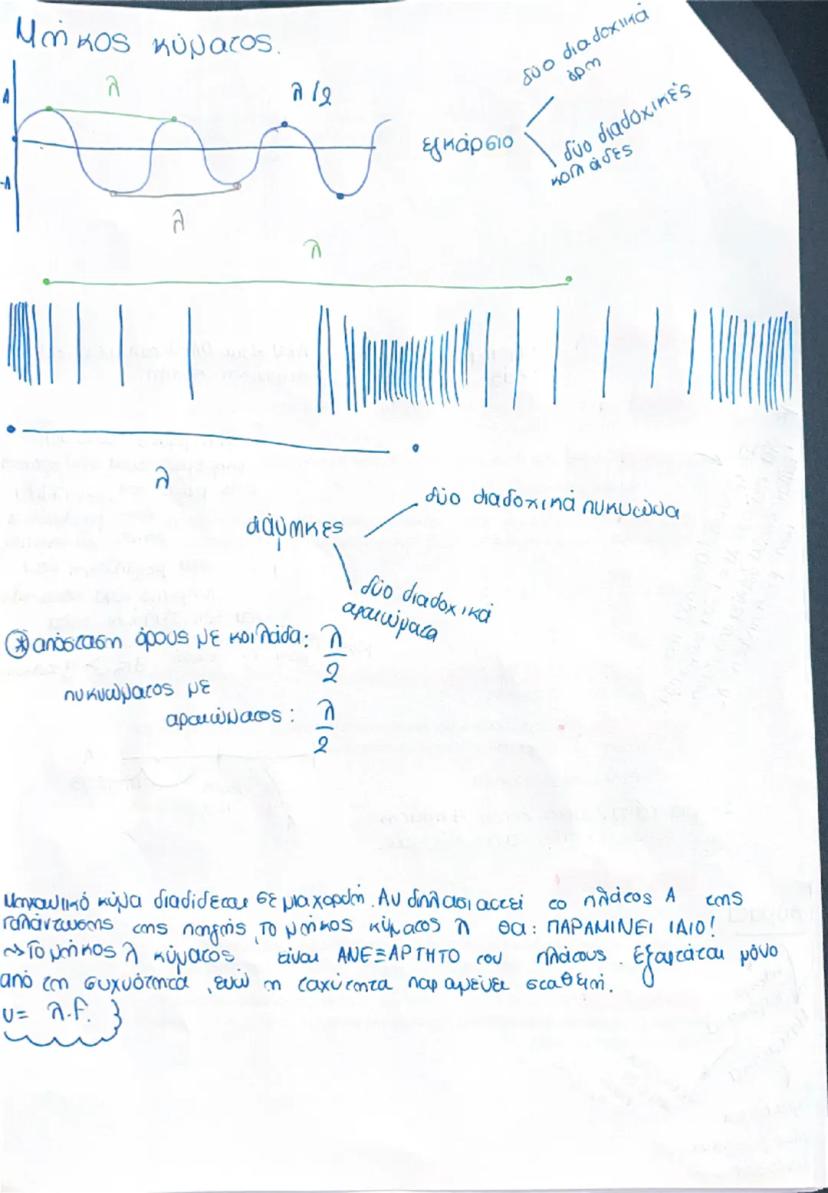 Μήκος κύματος.
λ
λ/2
A
-A
λ
εγκάρσιο
δύο διαδοχικά
όρη
δύο διαδοχικές
κοιλάδες
λ
λ
διάμηκες
δύο διαδοχικά πυκνώματα
δύο διαδοχικά
αραιώματα
* απόσταση όρους με κοιλάδα: λ/2
πυκνώματος με
αραιώματος: λ/2
Μηχανικό κύμα διαδίδεται σε μια χορδή. Αν διπλασιαστεί το πλάτος Α της
ταλάντωσης της πηγής, το μήκος κύματος λ θα: ΠΑΡΑΜΙΝΕΙ ΙΔΙΟ!
→ Το μήκος λ κύματος είναι ΑΝΕΞΑΡΤΗΤΟ του πλάτους. Εξαρτάται μόνο
από τη συχνότητα, ενώ η ταχύτητα παραμένει σταθερή.
υ= λ.f.